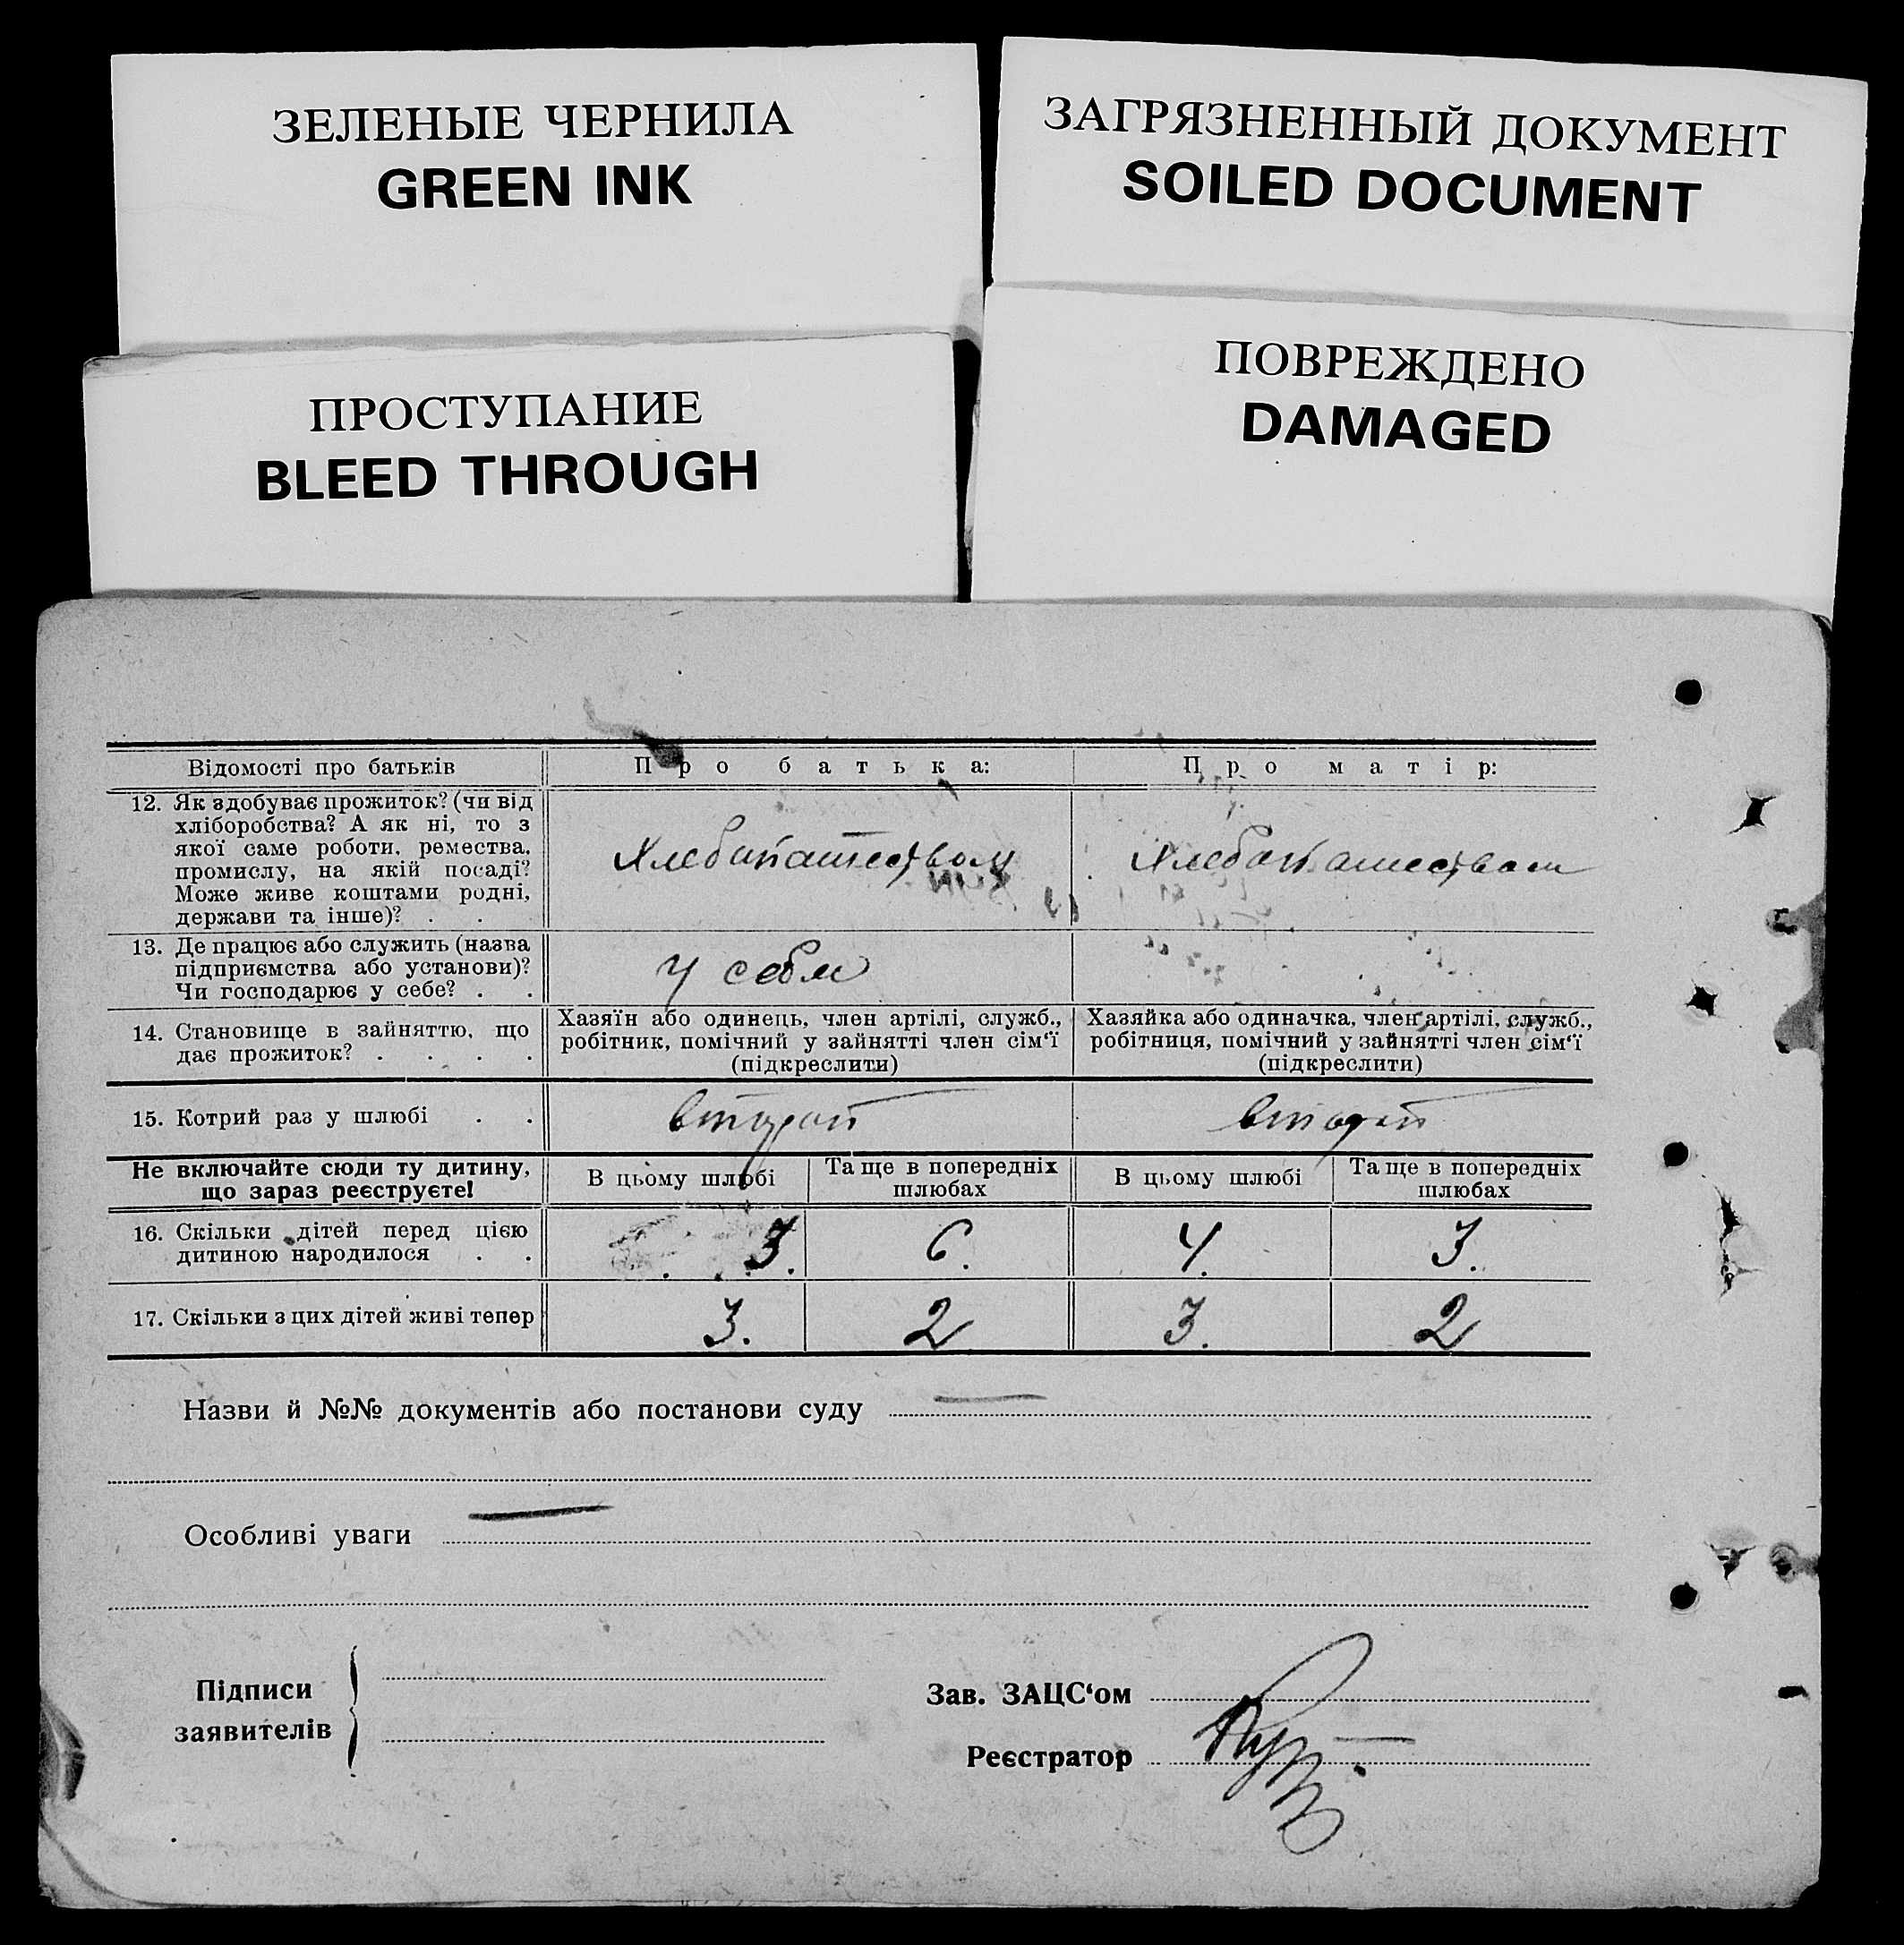 ЗЕЛЕНЫЕ ЧЕРНИЛА
GREEN INK
ЗАГРЯЗНЕННЫЙ ДОКУМЕНТ
SOILED DOCUMENT
ПРОСТУПАНИЕ
BLEED THROUGH
ПОВРЕЖДЕНО
DAMAGED
Відомості про батьків
Про батька:
Про матір:
12. Як здобуває прожиток? (чи від
хліборобства? А як ні, то з
якої саме роботи, ремества,
промислу, на якій посаді?
Може живе коштами родні,
держави та інше)? . .
Хлебопашеством
Хлебопашеством
13. Де працює або служить (назва
підприємства або установи)?
Чи господарює у себе? . .
у себя
14. Становище в зайняттю, що
дає прожиток? . . . .
Хазяїн або одинець, член артілі, служб.,
робітник, помічний у зайнятті член сім‘ї
(підкреслити)
Хазяйка або одиначка, член артілі, служб.,
робітниця, помічний у зайнятті член сім‘ї
(підкреслити)
15. Котрий раз у шлюбі . .
второй
второй
Не включайте сюди ту дитину,
що зараз реєструєте!
В цьому шлюбі
Та ще в попередніх
шлюбах
В цьому шлюбі
Та ще в попередніх
шлюбах
16. Скільки дітей перед цією
дитиною народилося . .
3.
6.
4.
3.
17. Скільки з цих дітей живі тепер
3.
2
3.
2
Назви й №№ документів або постанови суду
Особливі уваги
Підписи
заявителів
Зав. ЗАЦС‘ом
Реєстратор